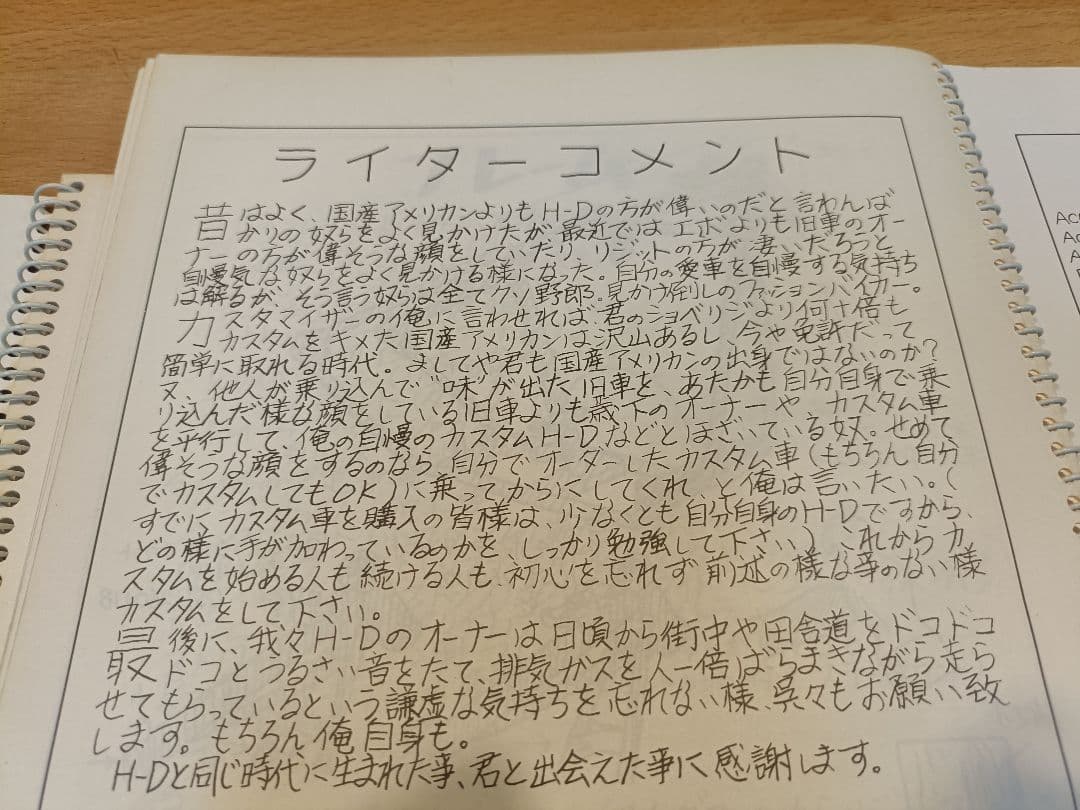 ライターコメント
昔はよく、国産アメリカンよりもH-Dの方が偉いのだと言わんば
かりの奴らをよく見かけたが、最近ではエボよりも旧車のオー
ナーの方が偉そうな顔をしていたり、リジットの方が凄いだろっと
自慢気な奴らをよく見かける様になった。自分の愛車を自慢する気持ち
は解るが、そう言う奴らは全てクソ野郎。見かけ倒しのファッションバイカー。
カスタマイザーの俺に言わせれば、君のショベリジより何十倍も
カスタムをキメた国産アメリカンは沢山あるし、今や免許だって
簡単に取れる時代。ましてや君も国産アメリカンの出身ではないのか?
又、他人が乗り込んで"味"が出た旧車を、あたかも自分自身で乗
り込んだ様な顔をしている旧車よりも歳下のオーナーや、カスタム車
を平行して、俺の自慢のカスタムH-D、などとほざいている奴。せめて
偉そうな顔をするのなら、自分でオーダーしたカスタム車(もちろん自分
でカスタムしてもOK)に乗ってからにしてくれ、と俺は言いたい。(
すでにカスタム車を購入の皆様は、少なくとも自分自身のH-Dですから、
どの様に手が加わっているのかを、しっかり勉強して下さい)、これからカ
スタムを始める人も続ける人も、初心を忘れず前述の様な事のない様
カスタムをして下さい。
最後に、我々H-Dのオーナーは日頃から街中や田舎道をドコドコ
ドコとうるさい音をたて、排気ガスを人一倍ばらまきながら走ら
せてもらっているという謙虚な気持ちを忘れない様、呉々もお願い致
します。もちろん俺自身も。
H-Dと同じ時代に生まれた事、君と出会えた事に感謝します。